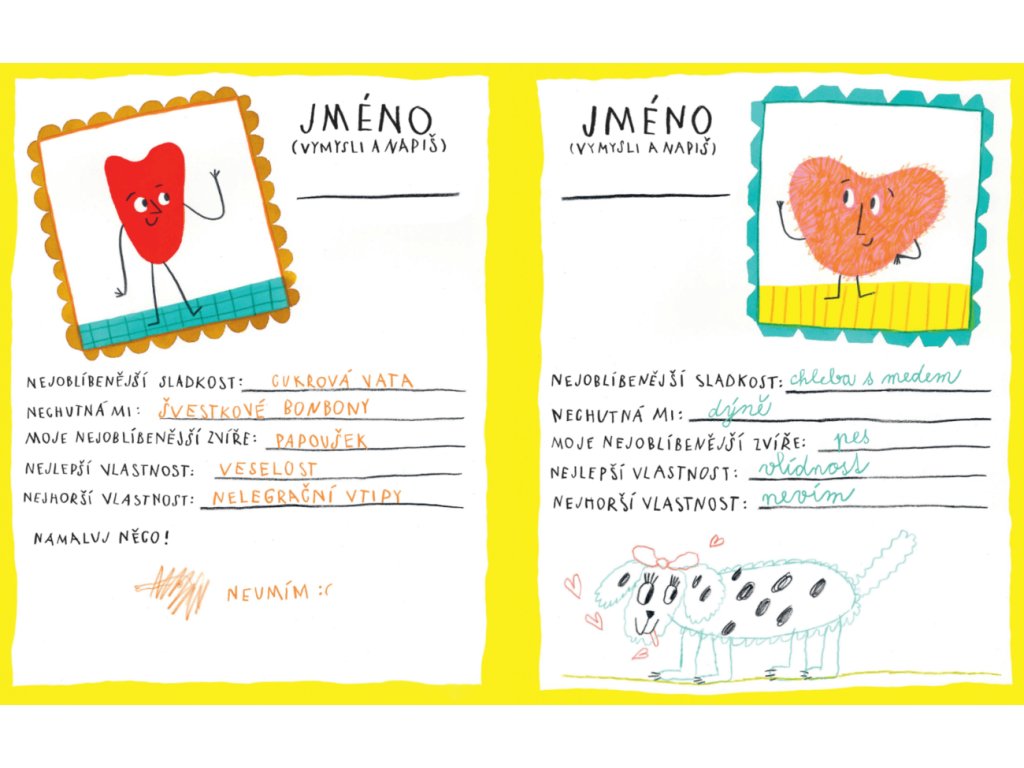 JMÉNO
(VYMYSLI A NAPIŠ)
NEJOBLÍBENĚJŠÍ SLADKOST: CUKROVÁ VATA
NECHUTNÁ MI: ŠVESTKOVÉ BONBONY
MOJE NEJOBLÍBENĚJŠÍ ZVÍŘE: PAPOUŠEK
NEJLEPŠÍ VLASTNOST: VESELOST
NEJHORŠÍ VLASTNOST: NELEGRAČNÍ VTIPY
NAMALUJ NĚCO!
NEUMÍM :(
JMÉNO
(VYMYSLI A NAPIŠ)
NEJOBLÍBENĚJŠÍ SLADKOST: chleba s medem
NECHUTNÁ MI: dýně
MOJE NEJOBLÍBENĚJŠÍ ZVÍŘE: pes
NEJLEPŠÍ VLASTNOST: vlídnost
NEJHORŠÍ VLASTNOST: nevím